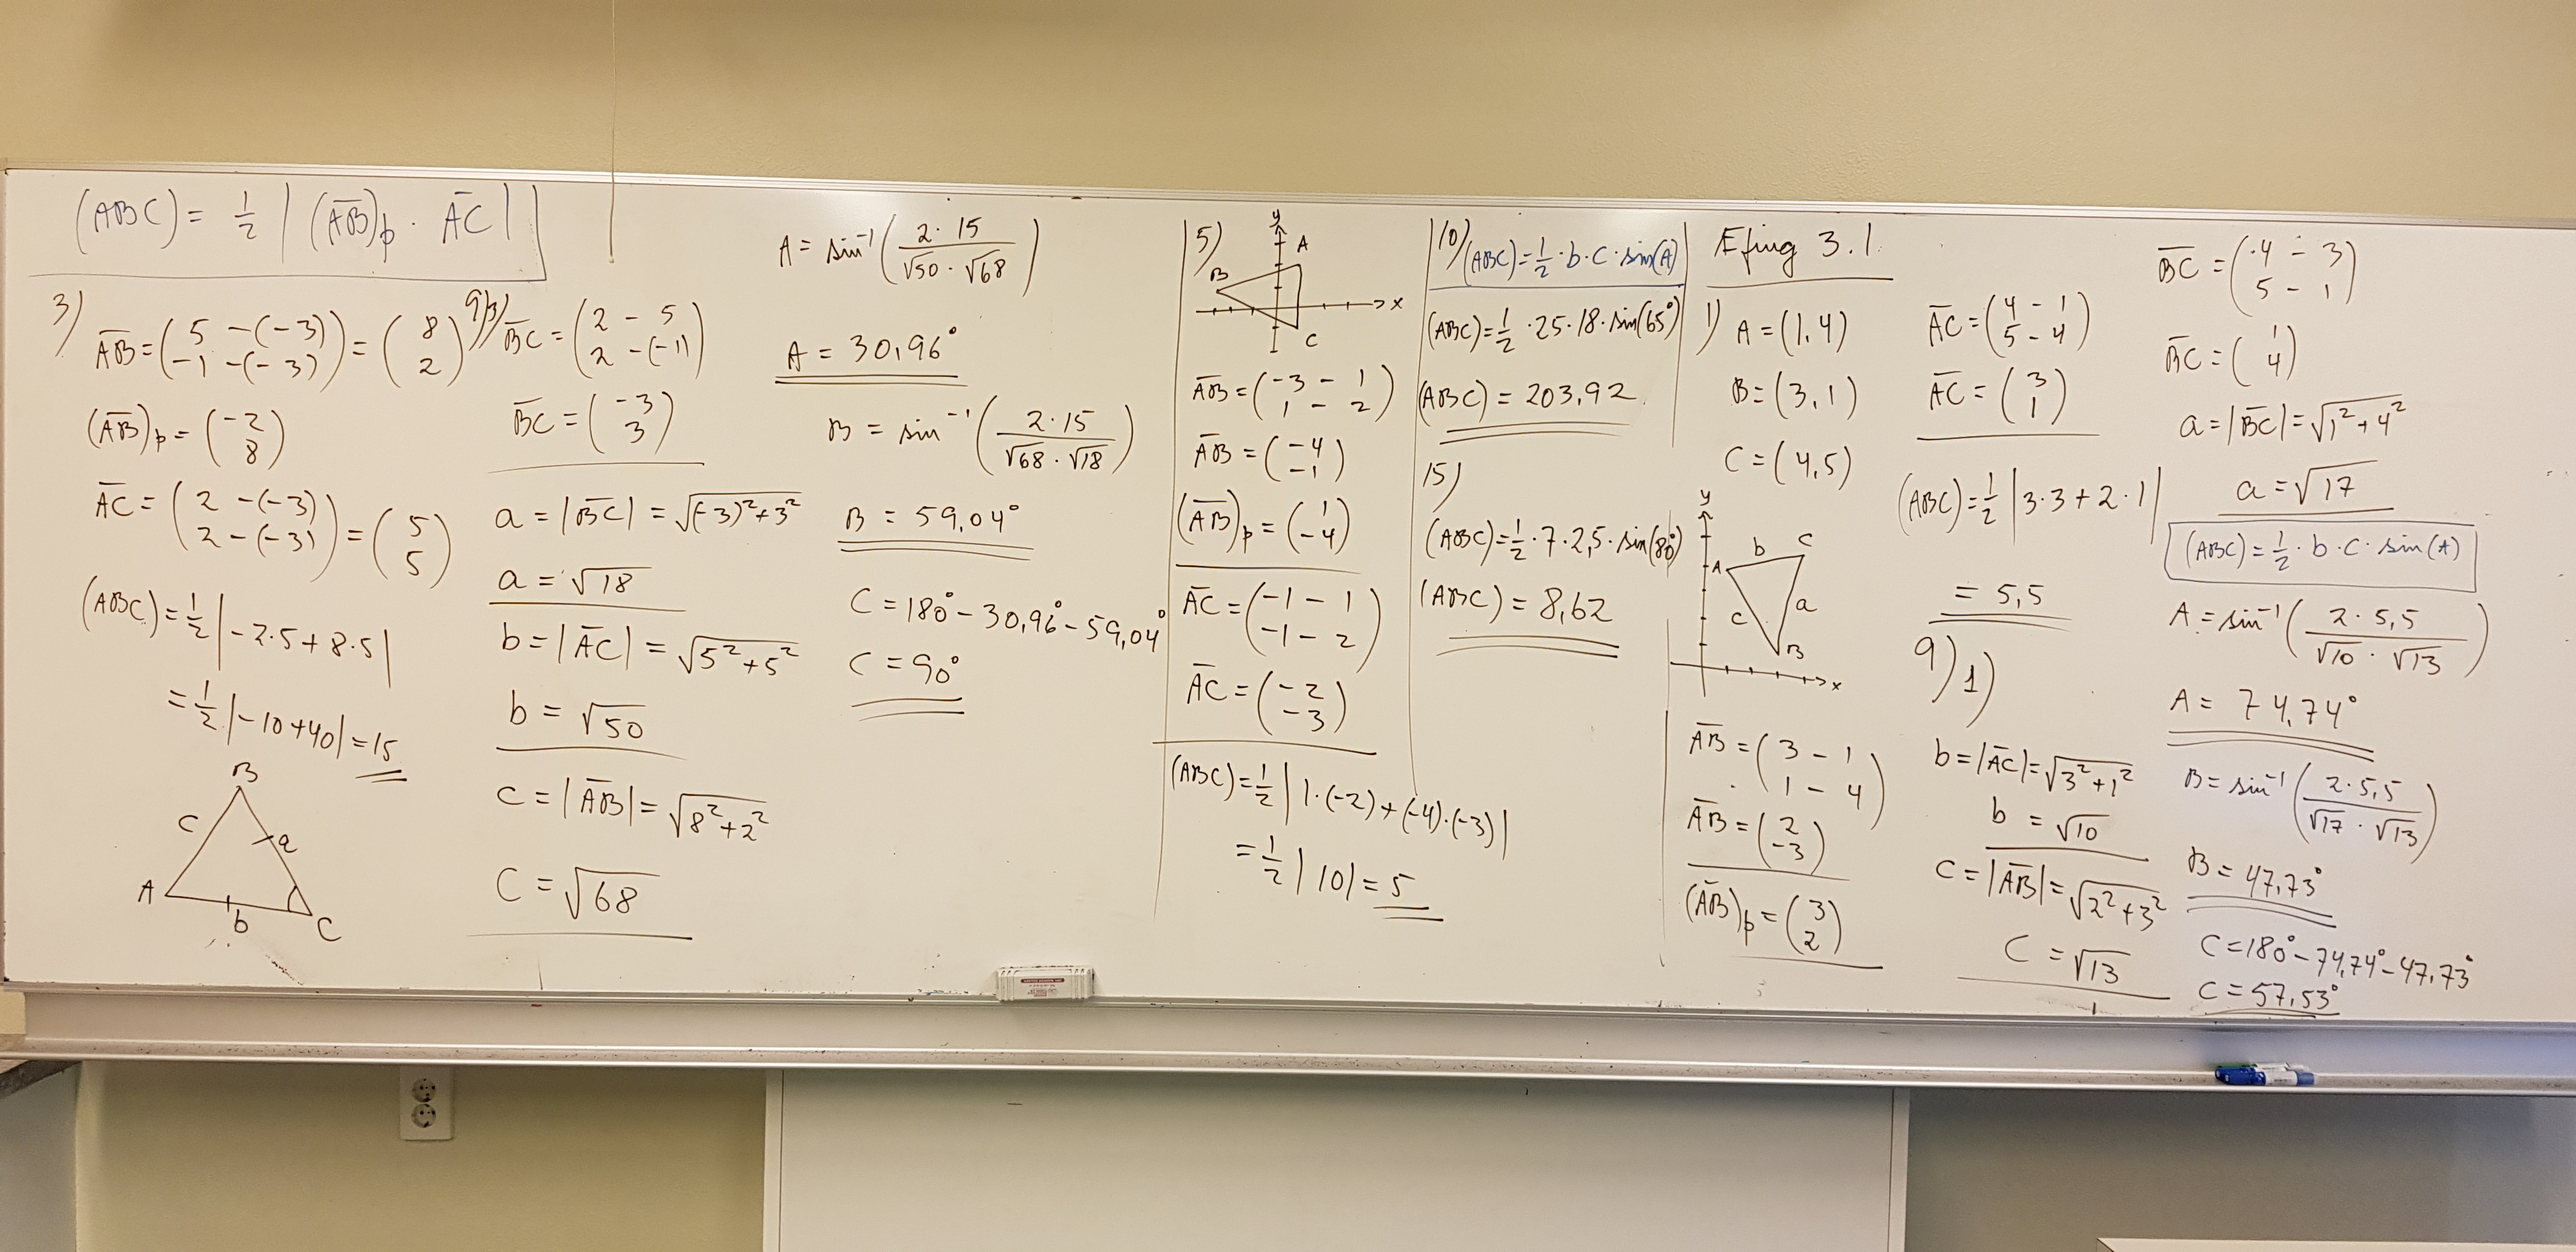 (ABC) = 1/2 |(A̅B̅)ₚ · A̅C̅|
3) A̅B̅ = (5 -(-3) ; -1 -(-3)) = (8 ; 2)
(A̅B̅)ₚ = (-2 ; 8)
A̅C̅ = (2 -(-3) ; 2 -(-3)) = (5 ; 5)
(ABC) = 1/2 |-2·5 + 8·5|
= 1/2 |-10+40| = 15
B
c
a
A
b
C
9)3) B̅C̅ = (2 - 5 ; 2 -(-1))
B̅C̅ = (-3 ; 3)
a = |B̅C̅| = √((-3)²+3²)
a = √18
b = |A̅C̅| = √(5²+5²)
b = √50
c = |A̅B̅| = √(8²+2²)
c = √68
A = sin⁻¹(2·15 / (√50 · √68))
A = 30,96°
B = sin⁻¹(2·15 / (√68 · √18))
B = 59,04°
C = 180° - 30,96° - 59,04°
C = 90°
5)
y
A
B
x
C
A̅B̅ = (-3 - 1 ; 1 - 2)
A̅B̅ = (-4 ; -1)
(A̅B̅)ₚ = (1 ; -4)
A̅C̅ = (-1 - 1 ; -1 - 2)
A̅C̅ = (-2 ; -3)
(ABC) = 1/2 |1·(-2) + (-4)·(-3)|
= 1/2 |10| = 5
10) (ABC) = 1/2 · b · c · sin(A)
(ABC) = 1/2 · 25 · 18 · sin(65°)
(ABC) = 203,92
15)
(ABC) = 1/2 · 7 · 2,5 · sin(80°)
(ABC) = 8,62
Æfing 3.1
1) A = (1,4)
B = (3,1)
C = (4,5)
y
A
b
C
c
a
B
x
A̅B̅ = (3 - 1 ; 1 - 4)
A̅B̅ = (2 ; -3)
(A̅B̅)ₚ = (3 ; 2)
A̅C̅ = (4 - 1 ; 5 - 4)
A̅C̅ = (3 ; 1)
(ABC) = 1/2 |3·3 + 2·1|
= 5,5
9) 1)
b = |A̅C̅| = √(3²+1²)
b = √10
c = |A̅B̅| = √(2²+3²)
c = √13
B̅C̅ = (4 - 3 ; 5 - 1)
B̅C̅ = (1 ; 4)
a = |B̅C̅| = √(1²+4²)
a = √17
(ABC) = 1/2 · b · c · sin(A)
A = sin⁻¹(2·5,5 / (√10 · √13))
A = 74,74°
B = sin⁻¹(2·5,5 / (√17 · √13))
B = 47,73°
C = 180° - 74,74° - 47,73°
C = 57,53°